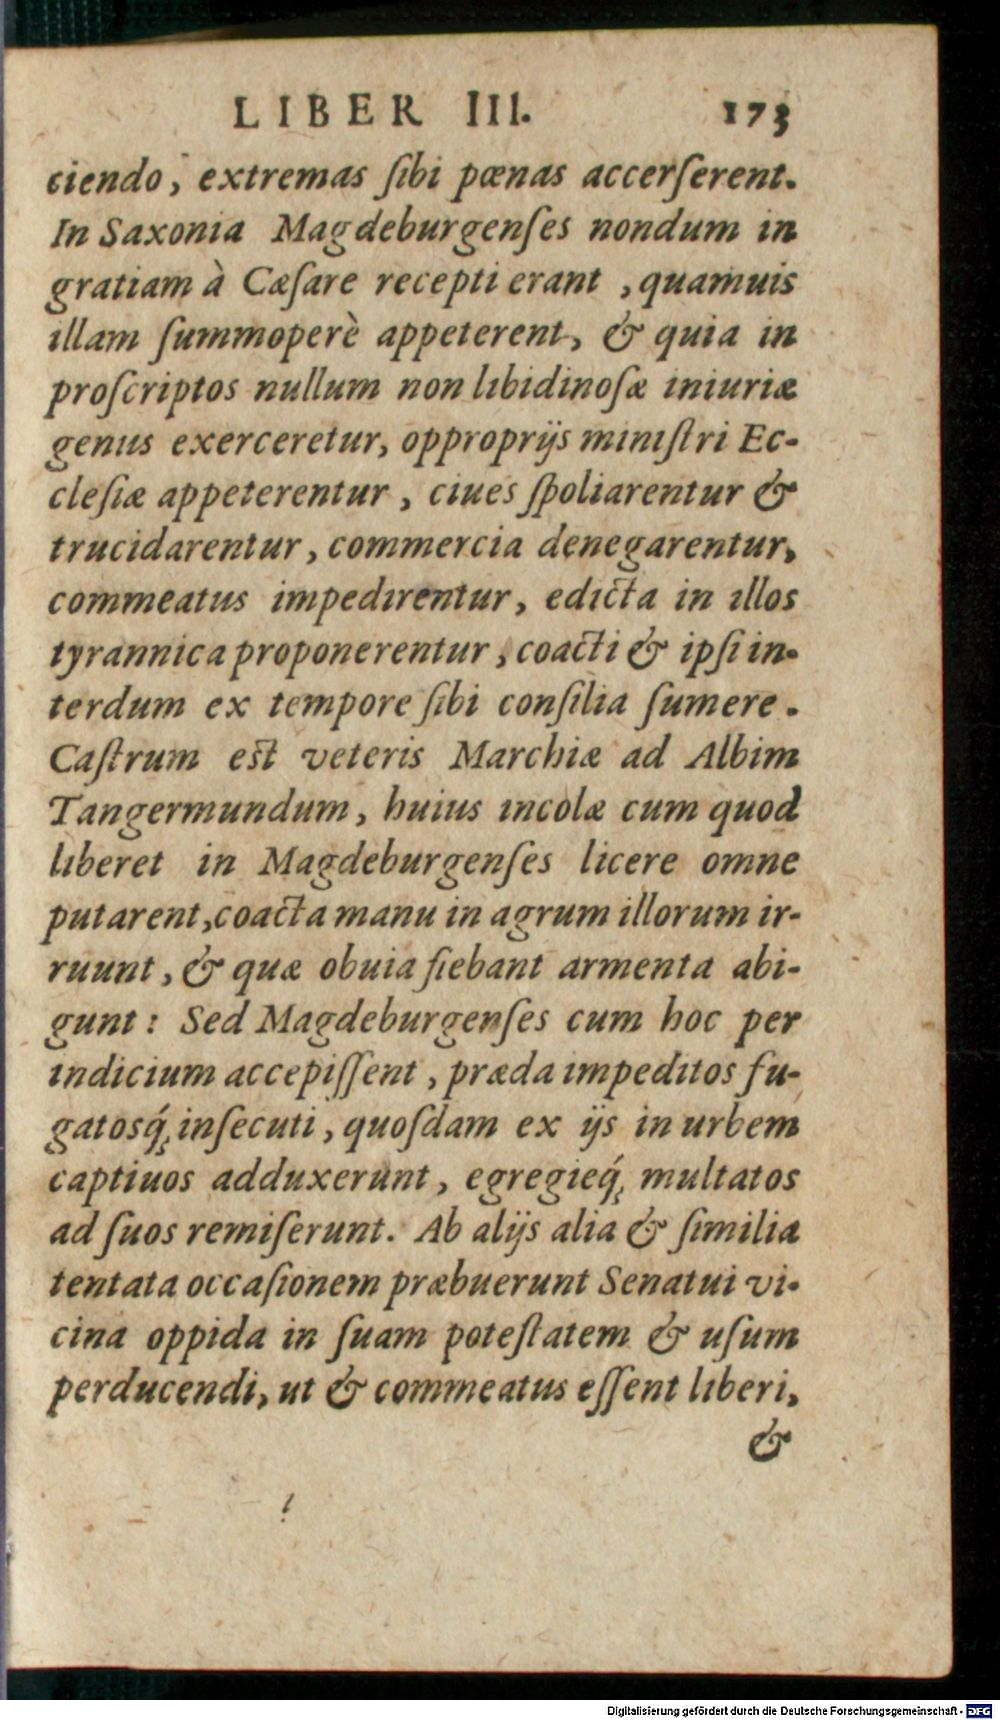 LIBER III. 173
ciendo, extremas ſibi pœnas accerſerent.
In Saxonia Magdeburgenſes nondum in
gratiam à Cæſare recepti erant , quamuis
illam ſummoperè appeterent, & quia in
proſcriptos nullum non libidinoſæ iniuriæ
genus exerceretur, opproprijs miniſtri Ec-
cleſiæ appeterentur , ciues ſpoliarentur &
trucidarentur , commercia denegarentur,
commeatus impedirentur, edicta in illos
tyrannica proponerentur , coacti & ipſi in-
terdum ex tempore ſibi conſilia ſumere .
Caſtrum eſt veteris Marchiæ ad Albim
Tangermundum, huius incolæ cum quod
liberet in Magdeburgenſes licere omne
putarent, coacta manu in agrum illorum ir-
ruunt, & quæ obuia fiebant armenta abi-
gunt : Sed Magdeburgenſes cum hoc per
indicium accepiſſent , præda impeditos fu-
gatosq́; inſecuti , quoſdam ex ijs in urbem
captiuos adduxerunt , egregieq́; multatos
ad ſuos remiſerunt. Ab alijs alia & ſimilia
tentata occaſionem præbuerunt Senatui vi-
cina oppida in ſuam poteſtatem & uſum
perducendi, ut & commeatus eſſent liberi,
&
Digitalisierung gefördert durch die Deutsche Forschungsgemeinschaft - DFG